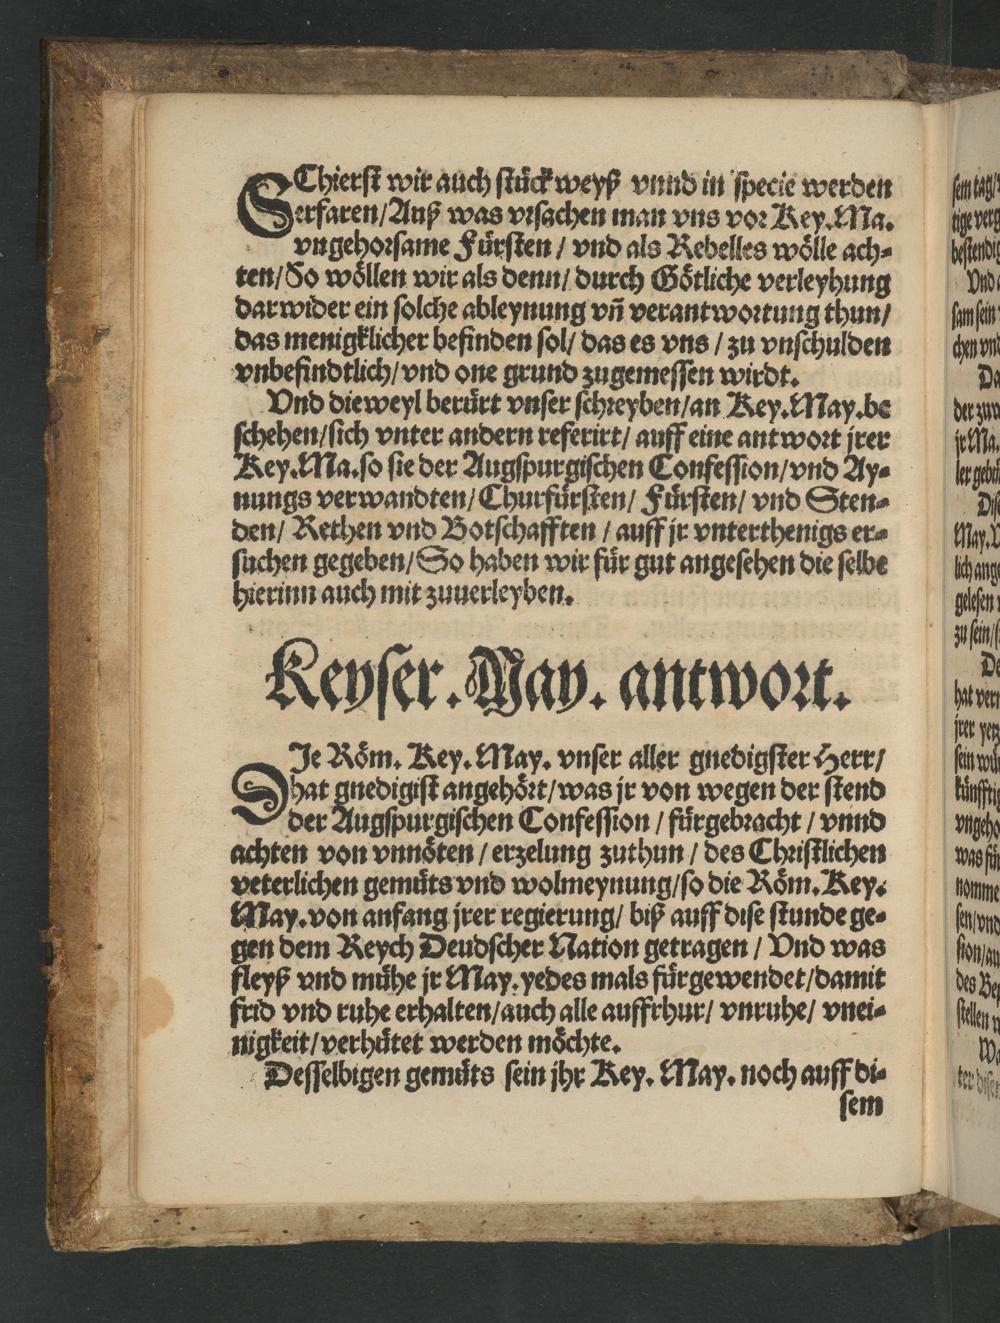 SChierst wir auch stückweyß vnnd in specie werden
erfaren/Auß was vrsachen man vns vor Key.Ma.
vngehorsame Fürsten / vnd als Rebelles wölle ach-
ten/So wöllen wir als denn/ durch Götliche verleyhung
darwider ein solche ableynung vn̄ verantwortung thun/
das menigklicher befinden sol/ das es vns / zu vnschulden
vnbefindtlich/vnd one grund zugemessen wirdt.
Vnd dieweyl berürt vnser schreyben/an Key.May.be
schehen/sich vnter andern referirt/ auff eine antwort jrer
Key.Ma.so sie der Augspurgischen Confession/vnd Ay-
nungs verwandten/Churfürsten/ Fürsten/ vnd Sten-
den/ Rethen vnd Botschafften / auff jr vnterthenigs er-
suchen gegeben/So haben wir für gut angesehen die selbe
hierinn auch mit zuuerleyben.
Keyser.May. antwort.
DJe Röm. Key. May. vnser aller gnedigster Herr/
hat gnedigist angehört/was jr von wegen der stend
der Augspurgischen Confession / fürgebracht / vnnd
achten von vnnöten / erzelung zuthun / des Christlichen
veterlichen gemüts vnd wolmeynung/so die Röm.Key.
May.von anfang jrer regierung/ biß auff dise stunde ge-
gen dem Reych Deudscher Nation getragen / Vnd was
fleyß vnd mühe jr May.yedes mals fürgewendet/damit
frid vnd ruhe erhalten/auch alle auffrhur/ vnruhe/ vnei-
nigkeit/verhütet werden möchte.
Desselbigen gemüts sein jhr Key. May. noch auff di-
sem